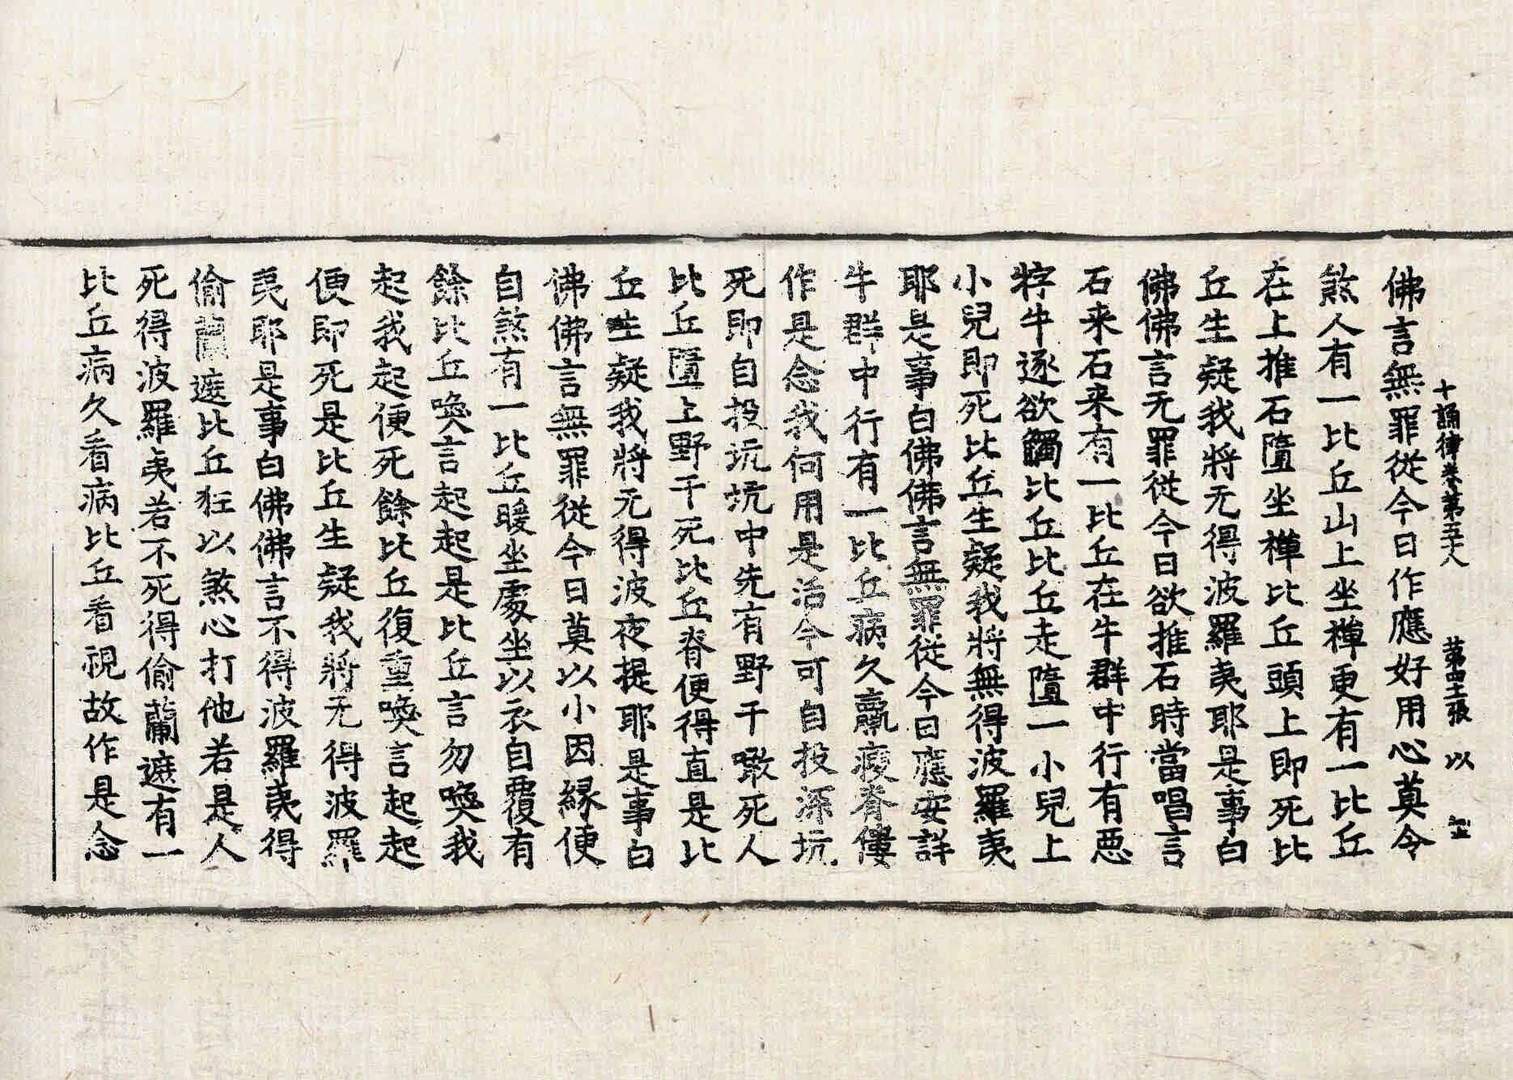 十誦律卷第五八　第四十二張　以
佛言無罪從今日作應好用心莫令
煞人有一比丘山上坐禪更有一比丘
在上推石墮坐禪比丘頭上即死比
丘生疑我將无得波羅夷耶是事白
佛佛言无罪從今日欲推石時當唱言
石来石来有一比丘在牛群中行有悪
牸牛逐欲觸比丘比丘走墮一小兒上
小兒即死比丘生疑我將無得波羅夷
耶是事白佛佛言無罪從今日應安詳
牛群中行有一比丘病久羸瘦脊僂
作是念我何用是活今可自投深坑
死即自投坑坑中先有野干噉死人
比丘墮上野干死比丘脊便得直是比
丘生疑我將无得波夜提耶是事白
佛佛言無罪從今日莫以小因縁便
自煞有一比丘暖坐處坐以衣自覆有
餘比丘喚言起起是比丘言勿喚我
起我起便死餘比丘復重喚言起起
便即死是比丘生疑我將无得波羅
夷耶是事白佛佛言不得波羅夷得
偷蘭遮比丘狂以煞心打他若是人
死得波羅夷若不死得偷蘭遮有一
比丘病久看病比丘看視故作是念